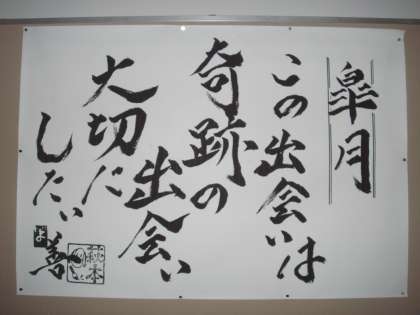 皐月
この出会いは
奇跡の
出会い
大切に
したい
善